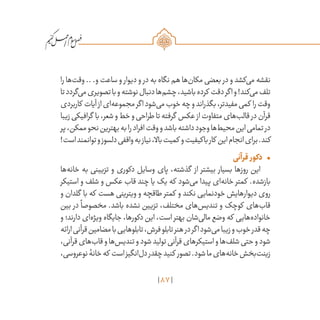 نقشه می‌کشد و در بعضی مکان‌ها هم نگاه به در و دیوار و ساعت و... وقت‌ها را
تلف می‌کند! و اگر دقت کرده باشید، چشم‌ها دنبال نوشته و یا تصویری می‌گردد تا
وقت را کمی مفیدتر، بگذراند و چه خوب می‌شود اگر مجموعه‌ای از آیات کاربردی
قرآن در قالب‌های متفاوت از عکس گرفته تا طراحی و خط و شعر، با گرافیکی زیبا
در تمامی این محیط‌ها وجود داشته باشد و وقت افراد را به بهترین نحو ممکن، پر
کند. برای انجام این کار باکیفیت و کمیت بالا، نیاز به واقفی دلسوز و توانمند است!
• دکور قرآنی
این روزها بسیار بیشتر از گذشته، پای وسایل دکوری و تزیینی به خانه‌ها
باز شده. کمتر خانه‌ای پیدا می‌شود که یک یا چند قاب عکس و شلف و استیکر
روی دیوارهایش خودنمایی نکند و کمتر طاقچه و ویترینی هست که با گلدان و
قاب‌های کوچک و تندیس‌های مختلف، تزیین نشده باشد. مخصوصاً در بین
خانواده‌هایی که وضع مالی‌شان بهتر است، این دکورها، جایگاه ویژه‌ای دارند؛ و
چه قدر خوب و زیبا می‌شود اگر در هنر تابلو فرش، تابلوهایی با مضامین قرآنی ارائه
شود و حتی شلف‌ها و استیکرهای قرآنی تولید شود و تندیس‌ها و قاب‌های قرآنی،
زینت‌بخش خانه‌های ما شود. تصور کنید چقدر دل‌انگیز است که خانهٔ نوعروسی،
|۸۷|